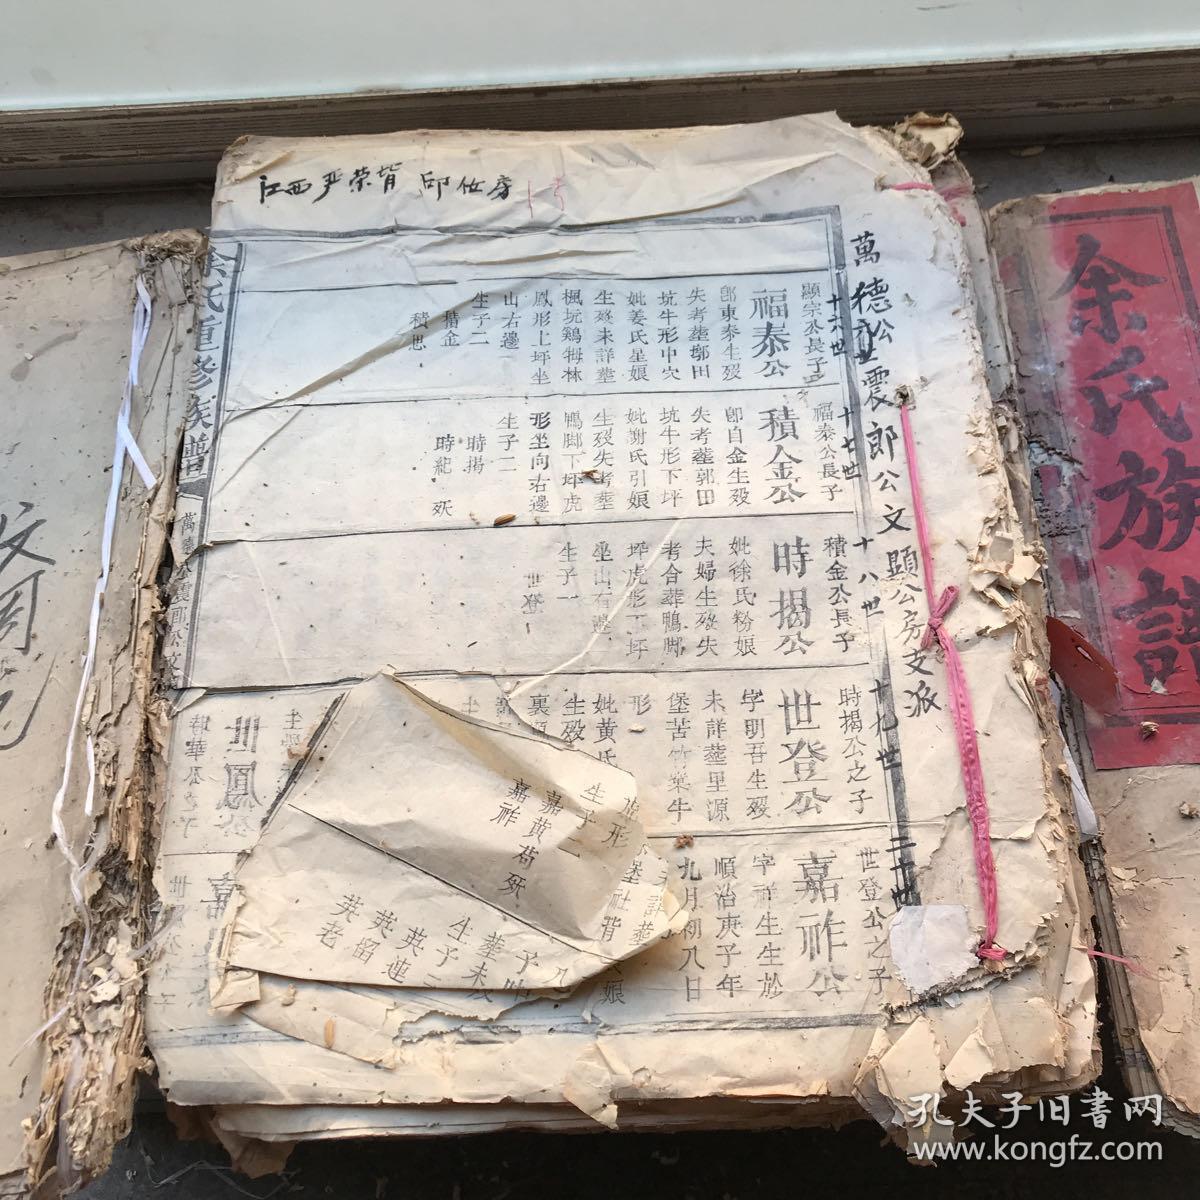 江西严荣背
萬德公世震郎公文顯公房支派
十六世
顯宗公長子
福泰公
郎東泰生殁
失考塟鄡田
坑牛形中穴
妣姜氏星娘
生殁未詳塟
楓坑鷄栂林
鳳形上坪坐
山右邊
生子二
積金
積思
十七世
福泰公長子
積金公
郎自金生殁
失考塟郭田
坑牛形下坪
妣謝氏引娘
生殁失考塟
鴨脚下坪虎
形坐向右邊
生子二
時揭
時紀 殀
十八世
積金公長子
時揭公
妣徐氏粉娘
夫婦生殁失
考合葬鴨脚
坪虎形下坪
坐山右邊
生子一
世登
十九世
時揭公之子
世登公
字明吾生殁
未詳塟里源
堡苦竹窠牛
形
妣黄氏
生殁
二十世
世登公之子
嘉祚公
字祥生生於
順治庚子年
九月初八日
虎形
生子二
嘉黄苟殀
嘉祚
塟未
生子三
英連
英留
英老
余氏重修族譜
世鳳公
余氏族譜
孔夫子旧書网
www.kongfz.com